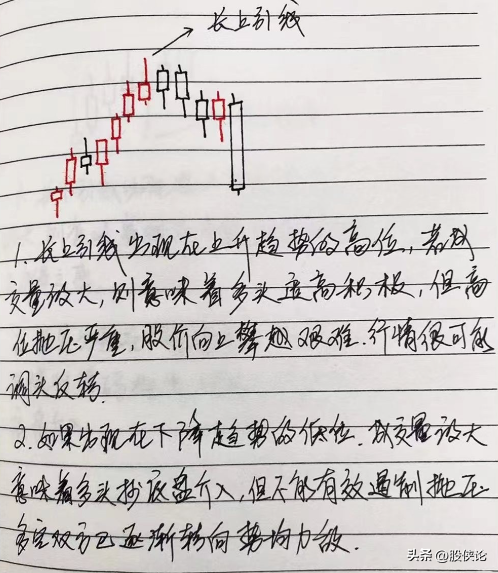 长上引线
1. 长上引线出现在上升趋势的高位,若成
交量放大,则意味着多头追高积极,但高
位抛压严重,股价向上攀越艰难.行情很可能
调头反转.
2.如果出现在下降趋势的低位.成交量放大
意味着多头抄底盘介入,但不能有效遏制抛压
多空双方已逐渐转向势均力敌.
头条 @股侠论